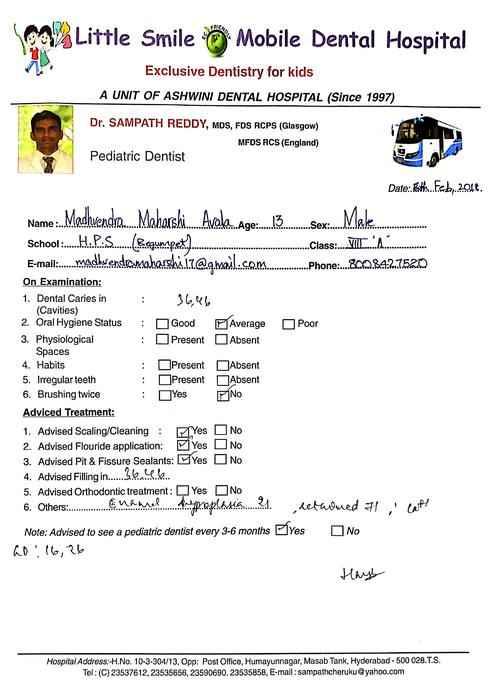 Little Smile ECO FRIENDLY Mobile Dental Hospital
Exclusive Dentistry for kids
A UNIT OF ASHWINI DENTAL HOSPITAL (Since 1997)
Dr. SAMPATH REDDY, MDS, FDS RCPS (Glasgow)
MFDS RCS (England)
Pediatric Dentist
Date: 8th Feb, 2018.
Name: Madhvendra Maharshi Avala Age: 13 Sex: Male
School: H.P.S (Begumpet) Class: VIII 'A'
E-mail: madhvendramaharshi17@gmail.com Phone: 8008427520
On Examination:
1. Dental Caries in (Cavities) : 36,46
2. Oral Hygiene Status : Good Average Poor
3. Physiological Spaces : Present Absent
4. Habits : Present Absent
5. Irregular teeth : Present Absent
6. Brushing twice : Yes No
Adviced Treatment:
1. Advised Scaling/Cleaning : Yes No
2. Advised Flouride application: Yes No
3. Advised Pit & Fissure Sealants: Yes No
4. Advised Filling in 36,46
5. Advised Orthodontic treatment : Yes No
6. Others: Enamel hypoplasia 21, retained
Note: Advised to see a pediatric dentist every 3-6 months Yes No
16, 26
Hospital Address:-H.No. 10-3-304/13, Opp: Post Office, Humayunnagar, Masab Tank, Hyderabad - 500 028.T.S.
Tel : (C) 23537612, 23535656, 23590690. 23535858, E-mail : sampathcheruku@yahoo.com